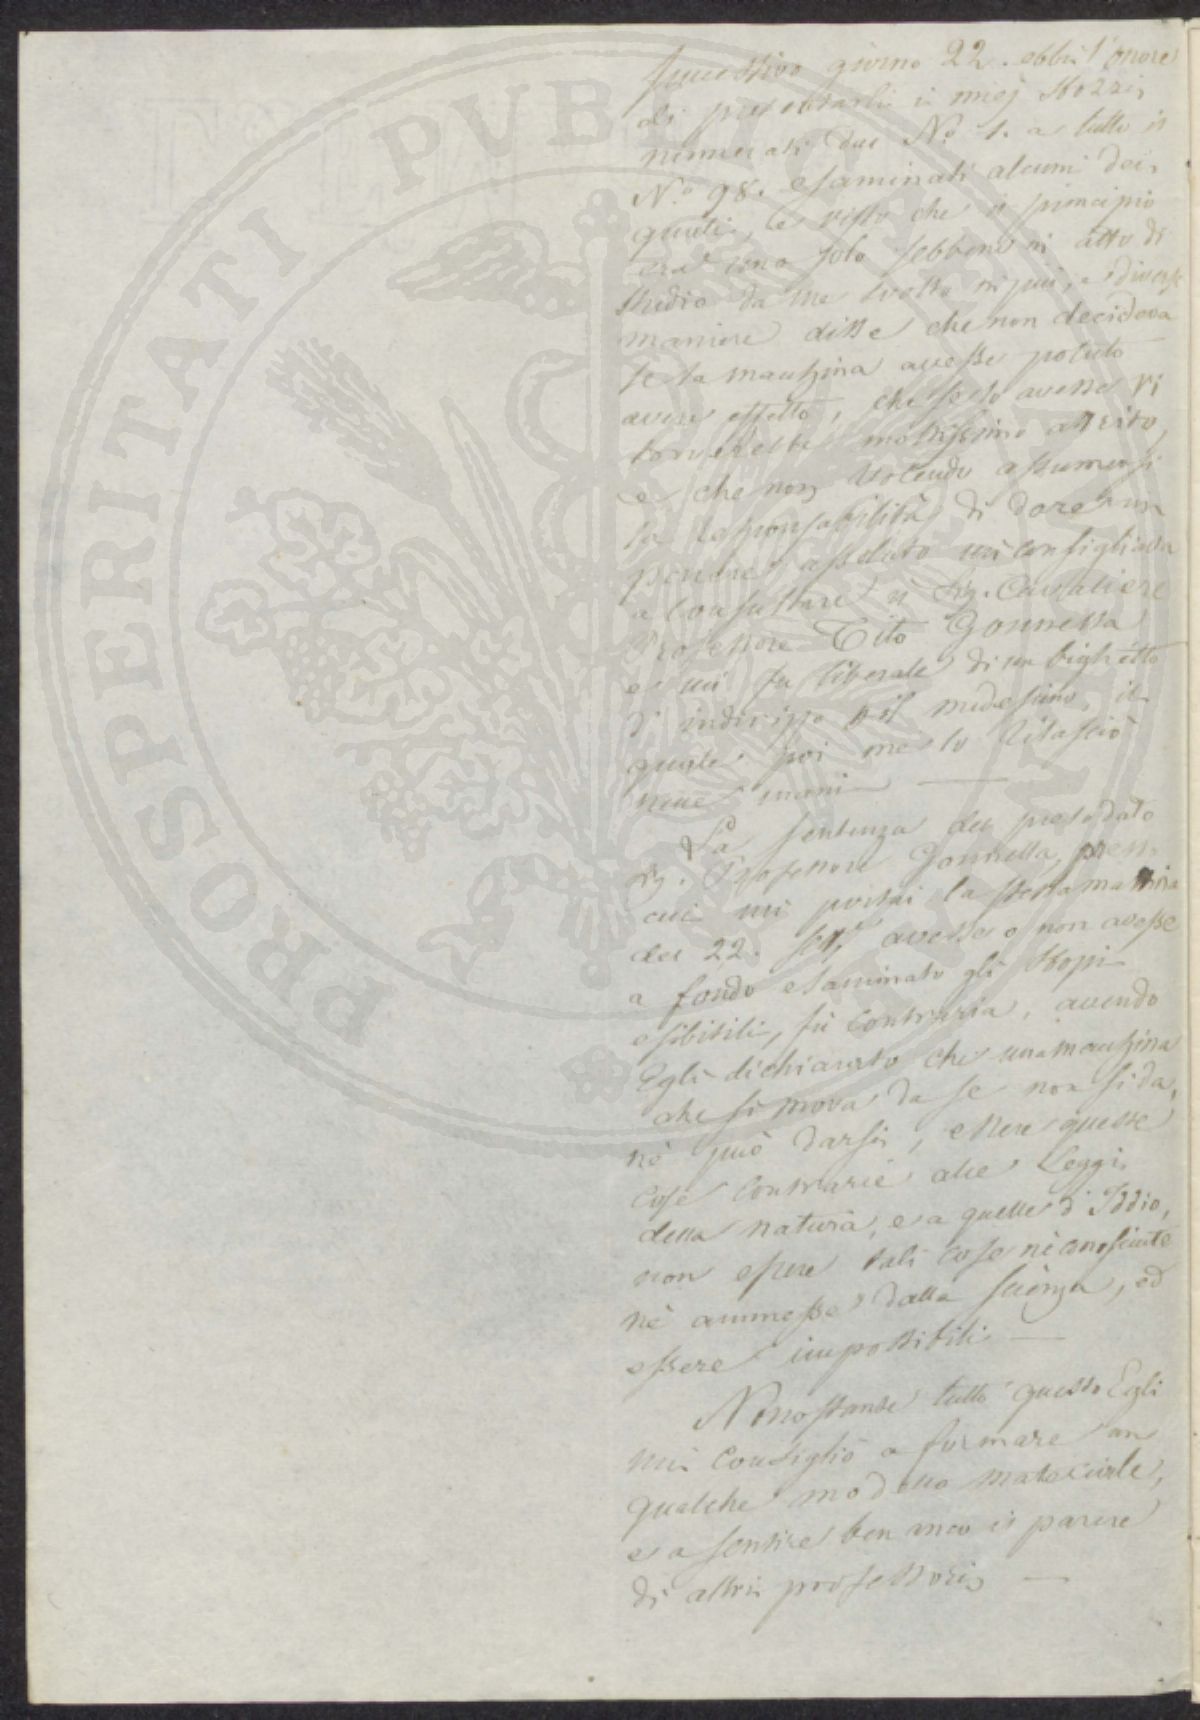 successivo giorno 22. ebbi l'onore
di presentarli i miej Bozzi
numerati dal No. 1. a tutto il
N.o 98. esaminati alcuni dei
quali, e visto che il principio
era uno solo sebbene in atto di
studio da me svolto in più, e diverse
maniere disse che non decideva
se la machina avesse potuto
avere effetto, che se lo avesse vi
sarebbe moltissimo attrito,
e che non volendo assumersi
la responsabilità di dare un
parere assoluto mi consigliava
a consultare il Sig. Cavaliere
Professore Tito Gonnella
e mi fu liberale di un biglietto
d'indirizzo p il medesimo il
quale poi me lo rilasciò
nelle mani —
La sentenza del prelodato
Sig. Professore Gonnella, presso
cui mi portai la stessa mattina
del 22. avesse o non avesse
a fondo esaminato gli
esibitili, fù contraria, avendo
Egli dichiarato che una machina
che si mova da se non si da,
nè può darsi, essere queste
cose contrarie alle Leggi
della natura, e a quelle d'Iddio,
non essere tali cose nè conosciute
nè ammesse dalla scienza, ed
essere impossibili —
Nonostante tutto questo Egli
mi consigliò a formare un
qualche modello materiale,
e a sentire ben anco il parere
di altri professori —
PROSPERITATI PUBLICAE AUGENDAE